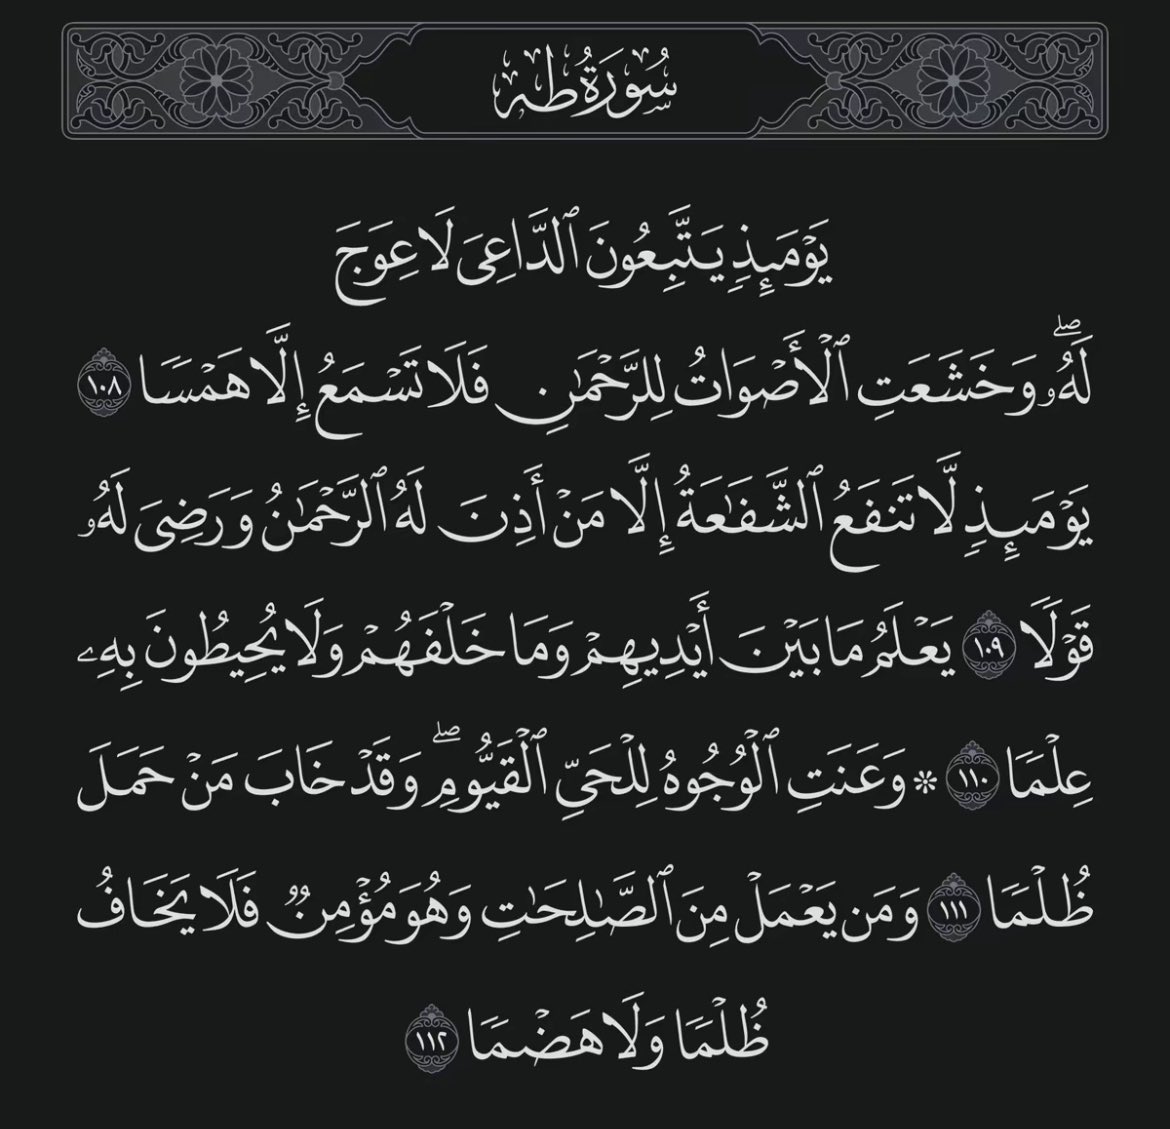 سُورَةُ طه
يَوْمَئِذٍ يَتَّبِعُونَ ٱلدَّاعِىَ لَا عِوَجَ
لَهُۥۖ وَخَشَعَتِ ٱلْأَصْوَاتُ لِلرَّحْمَٰنِ فَلَا تَسْمَعُ إِلَّا هَمْسًا ١٠٨
يَوْمَئِذٍ لَّا تَنفَعُ ٱلشَّفَٰعَةُ إِلَّا مَنْ أَذِنَ لَهُ ٱلرَّحْمَٰنُ وَرَضِىَ لَهُۥ
قَوْلًا ١٠٩ يَعْلَمُ مَا بَيْنَ أَيْدِيهِمْ وَمَا خَلْفَهُمْ وَلَا يُحِيطُونَ بِهِۦ
عِلْمًا ١١٠ ۞ وَعَنَتِ ٱلْوُجُوهُ لِلْحَىِّ ٱلْقَيُّومِۖ وَقَدْ خَابَ مَنْ حَمَلَ
ظُلْمًا ١١١ وَمَن يَعْمَلْ مِنَ ٱلصَّٰلِحَٰتِ وَهُوَ مُؤْمِنٌ فَلَا يَخَافُ
ظُلْمًا وَلَا هَضْمًا ١١٢